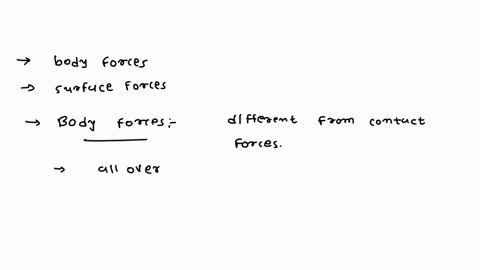 → body forces
→ surface forces
→ Body forces:- different from contact
forces.
→ all over